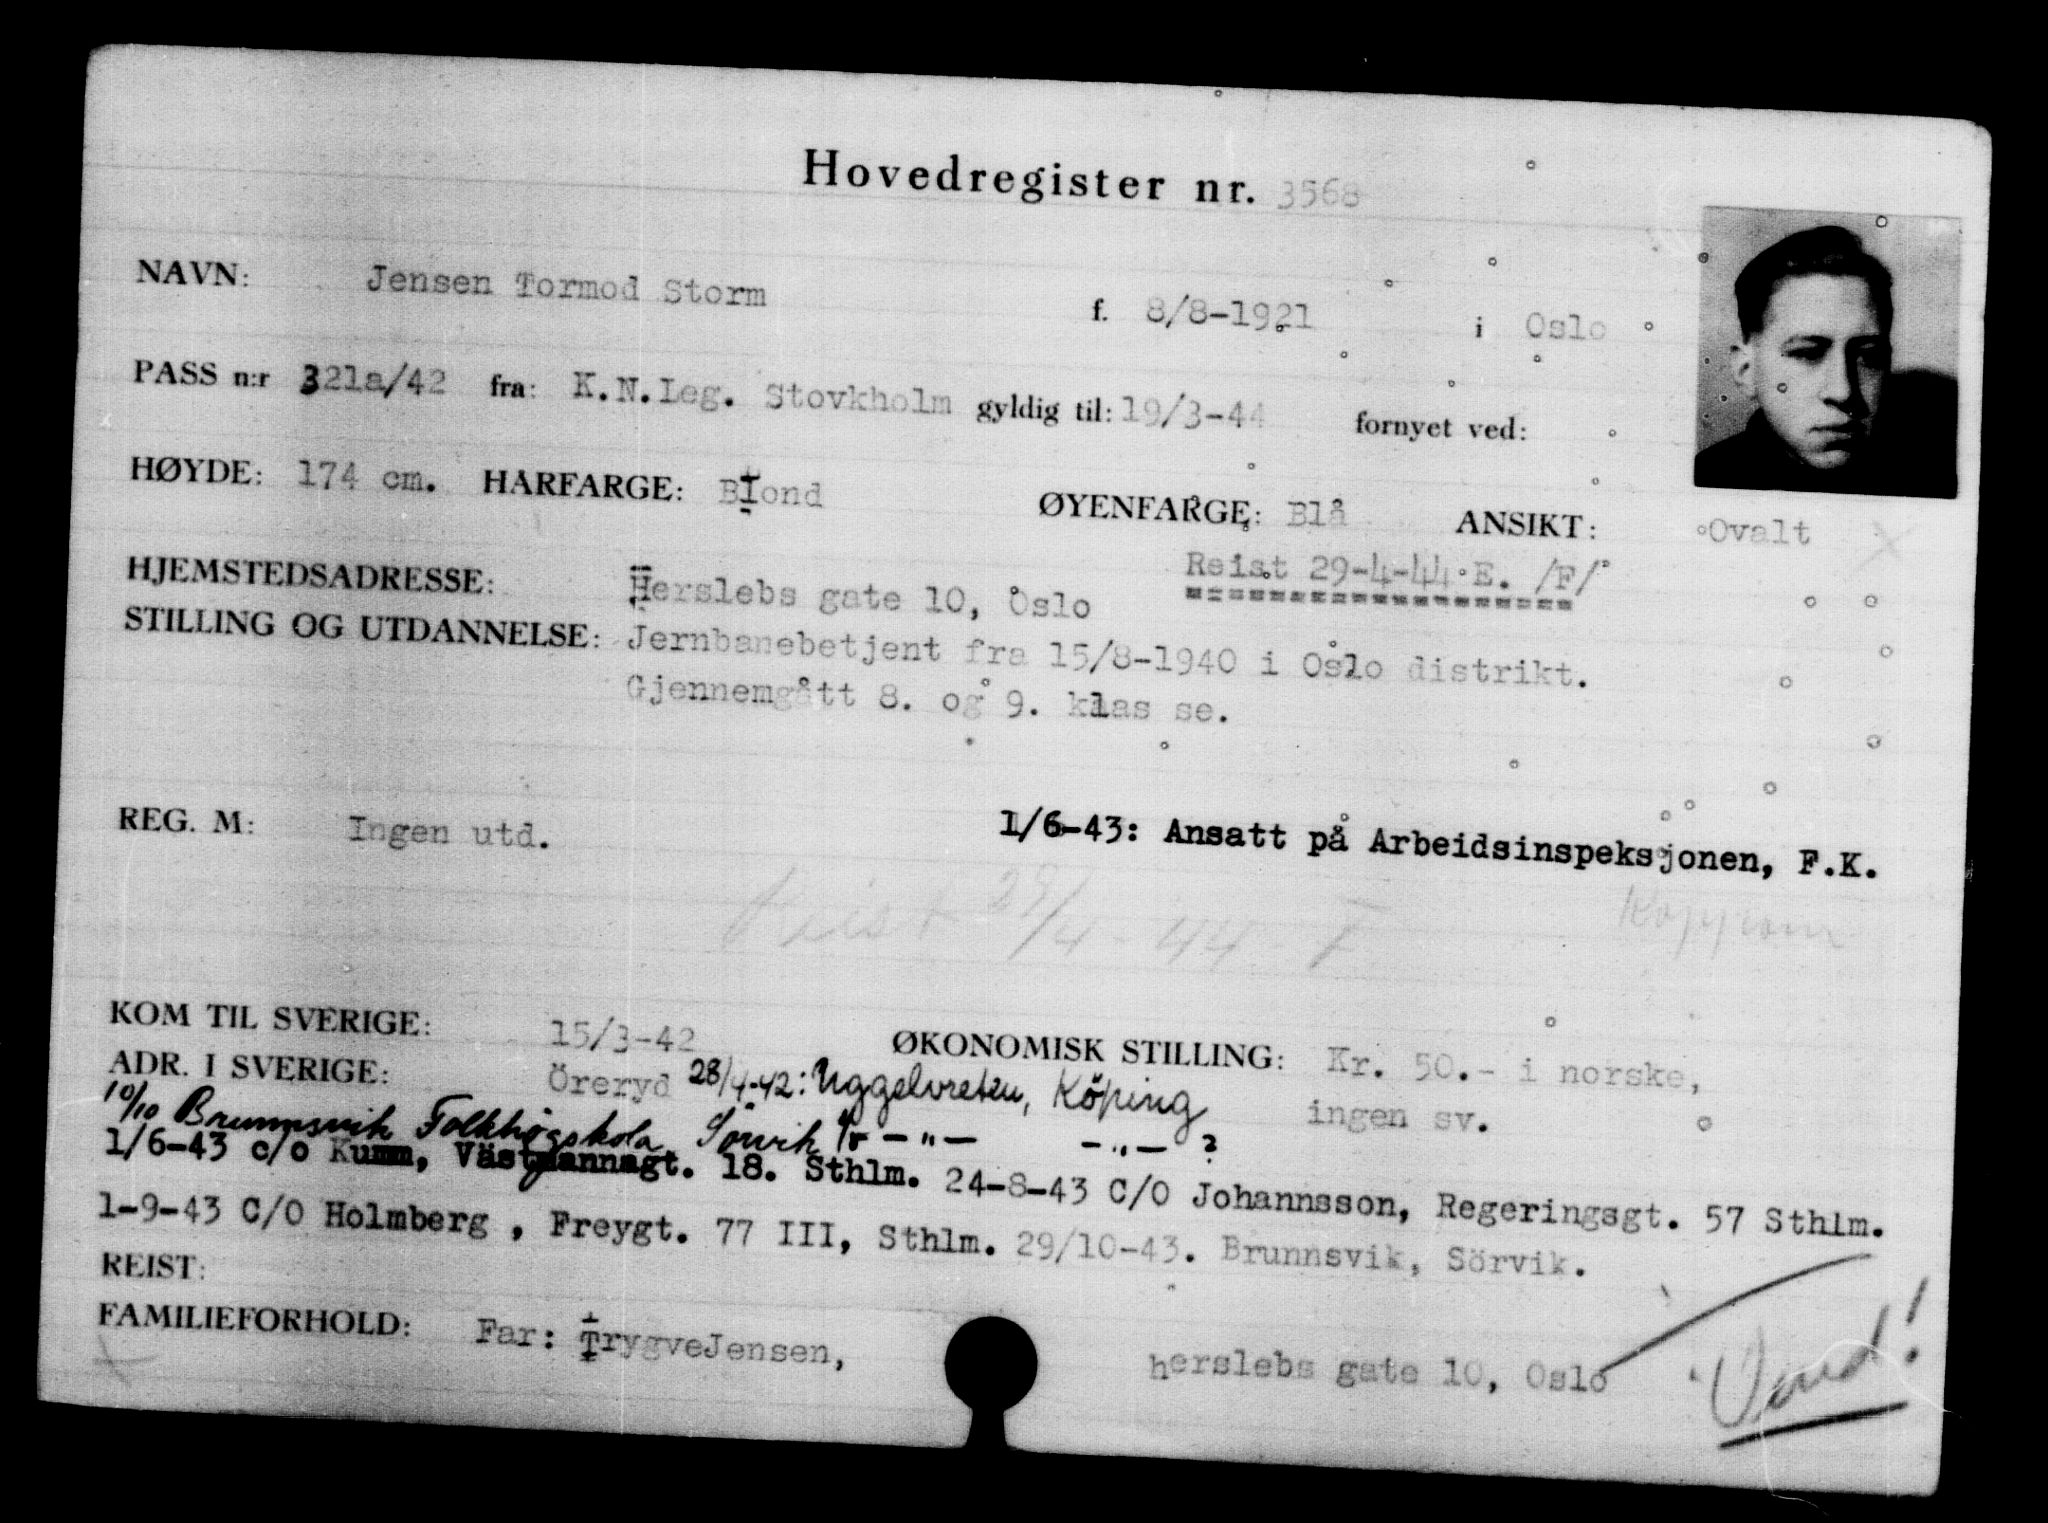 Hovedregister nr. 3568
NAVN: Jensen Tormod Storm f. 8/8-1921 i Oslo
PASS n:r 321a/42 fra: K.N.Leg. Stovkholm gyldig til: 19/3-44 fornyet ved:
HØYDE: 174 cm. HARFARGE: Blond ØYENFARGE: Blå ANSIKT: Ovalt
Reist 29-4-44 E. /F/
HJEMSTEDSADRESSE: Herslebs gate 10, Oslo
STILLING OG UTDANNELSE: Jernbanebetjent fra 15/8-1940 i Oslo distrikt.
Gjennemgått 8. og 9. klas se.
REG. M: Ingen utd. 1/6-43: Ansatt på Arbeidsinspeksjonen, F.K.
Reist 29/4-44 F
KOM TIL SVERIGE: 15/3-42 ØKONOMISK STILLING: Kr. 50.- i norske,
ADR. I SVERIGE: Öreryd 28/4-42: Uggelvreten, Köping ingen sv.
10/10 Brunnsvik Folkhögskola, Sörvik - " - - " - ?
1/6-43 c/o Kumm, Västmannagt. 18. Sthlm. 24-8-43 C/O Johannsson, Regeringsgt. 57 Sthlm.
1-9-43 C/O Holmberg , Freygt. 77 III, Sthlm. 29/10-43. Brunnsvik, Sörvik.
REIST:
FAMILIEFORHOLD: Far: TrygveJensen, herslebs gate 10, Oslo
Vend!